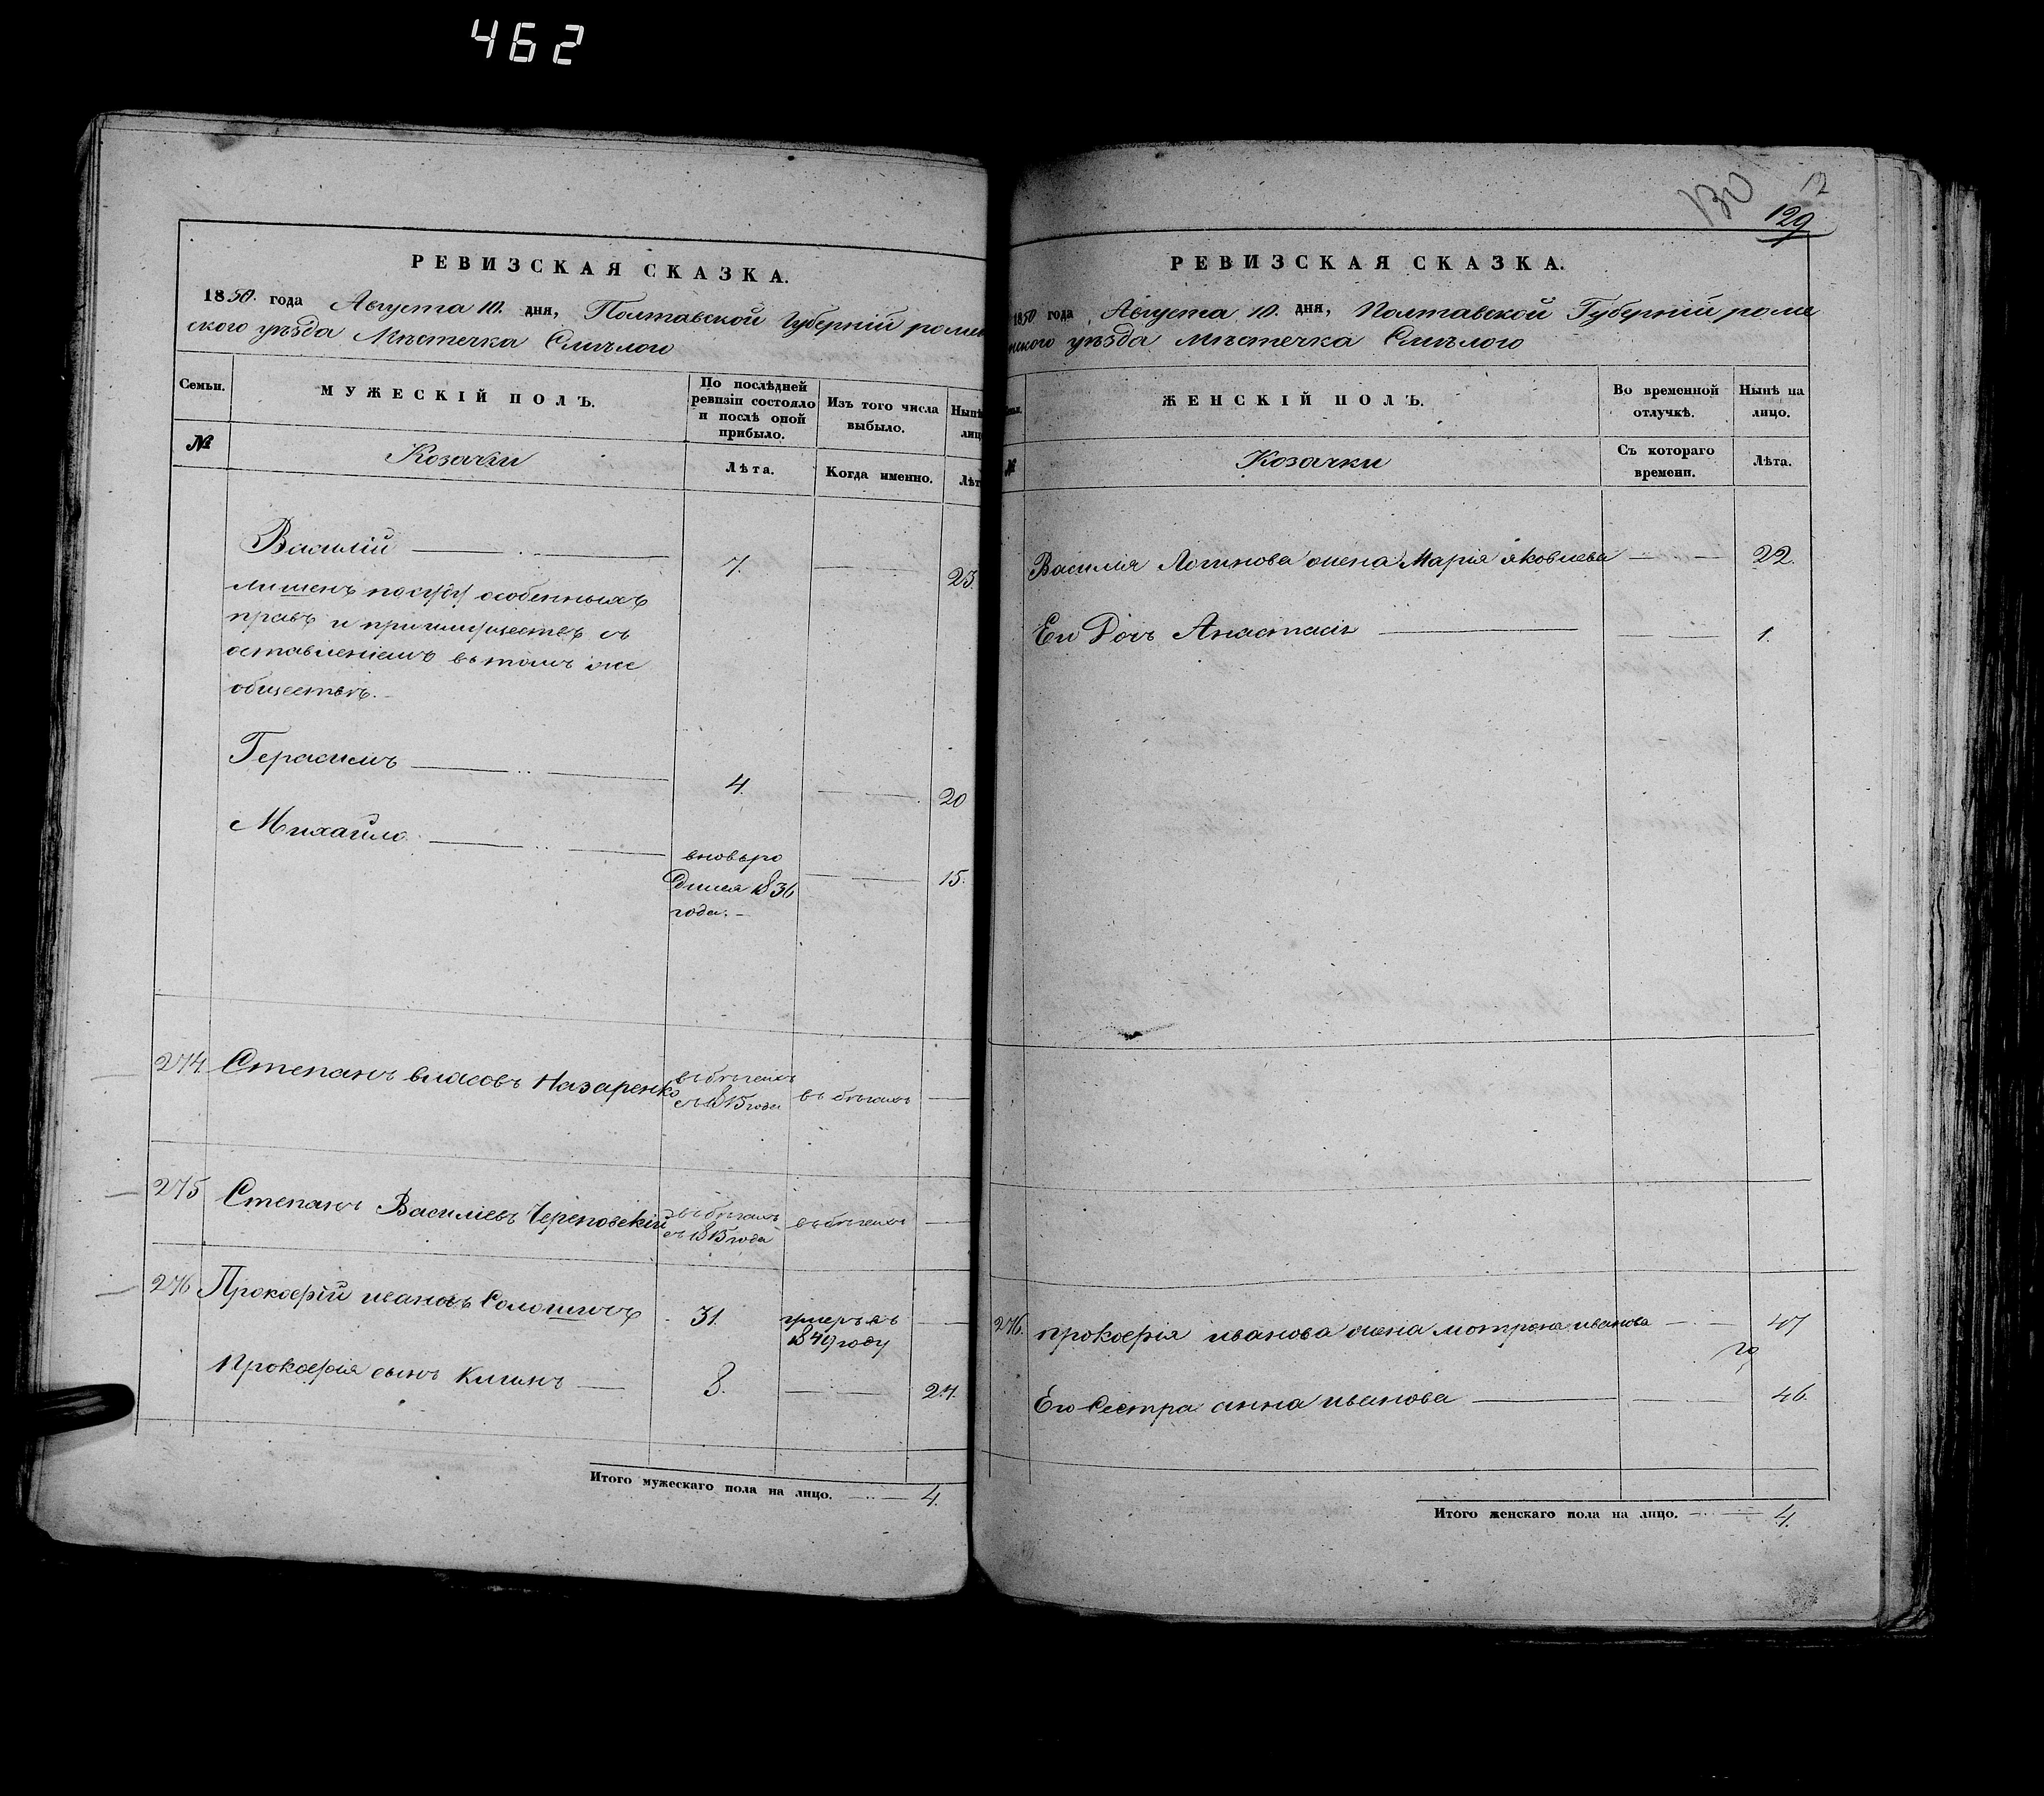 462
РЕВИЗСКАЯ СКАЗКА.
1850. года Августа 10. дня, Полтавской Губерніи ромен
ского уѣзда Мѣстечка Смѣлого
Семьи.
МУЖЕСКІЙ ПОЛЪ.
По послѣдней ревизіи состояло и послѣ оной прибыло.
Изъ того числа выбыло.
Нынѣ
лиц
№
Козачки
Лѣта.
Когда именно.
Лѣт
Василій
7.
23.
лишенъ по суду особенныхъ
правъ и приимуществъ съ
оставленіемъ въ томъ же
обществѣ.
Герасимъ
4.
20
Михайло
вновь ро
дился 1836
года.
15.
274 Степанъ власовъ Назаренко
въ бѣгахъ
съ 1815 года
въ бѣгахъ
275 Степанъ Василіевъ Череповскій
въ бѣгахъ
съ 1815 года
въ бѣгахъ
276 Прокофій ивановъ
31.
умеръ въ
1849 году
Прокофія сынъ
8.
24.
Итого мужескаго пола на лицо.
4.
130
12
129
РЕВИЗСКАЯ СКАЗКА.
1850 года Августа 10. дня, Полтавской Губерніи роме
нского уѣзда Мѣстечка Смѣлого
ЖЕНСКІЙ ПОЛЪ.
Во временной отлучкѣ.
Нынѣ на лицо.
№
Козачки
Съ котораго времени.
Лѣта.
Василія Логинова жена Марія яковлева
22.
Ел Дочь Анастасія
1.
276. прокофія иванова жена мотрона иванова
47
Его Сестра анна иванова
46.
Итого женскаго пола на лицо.
4.